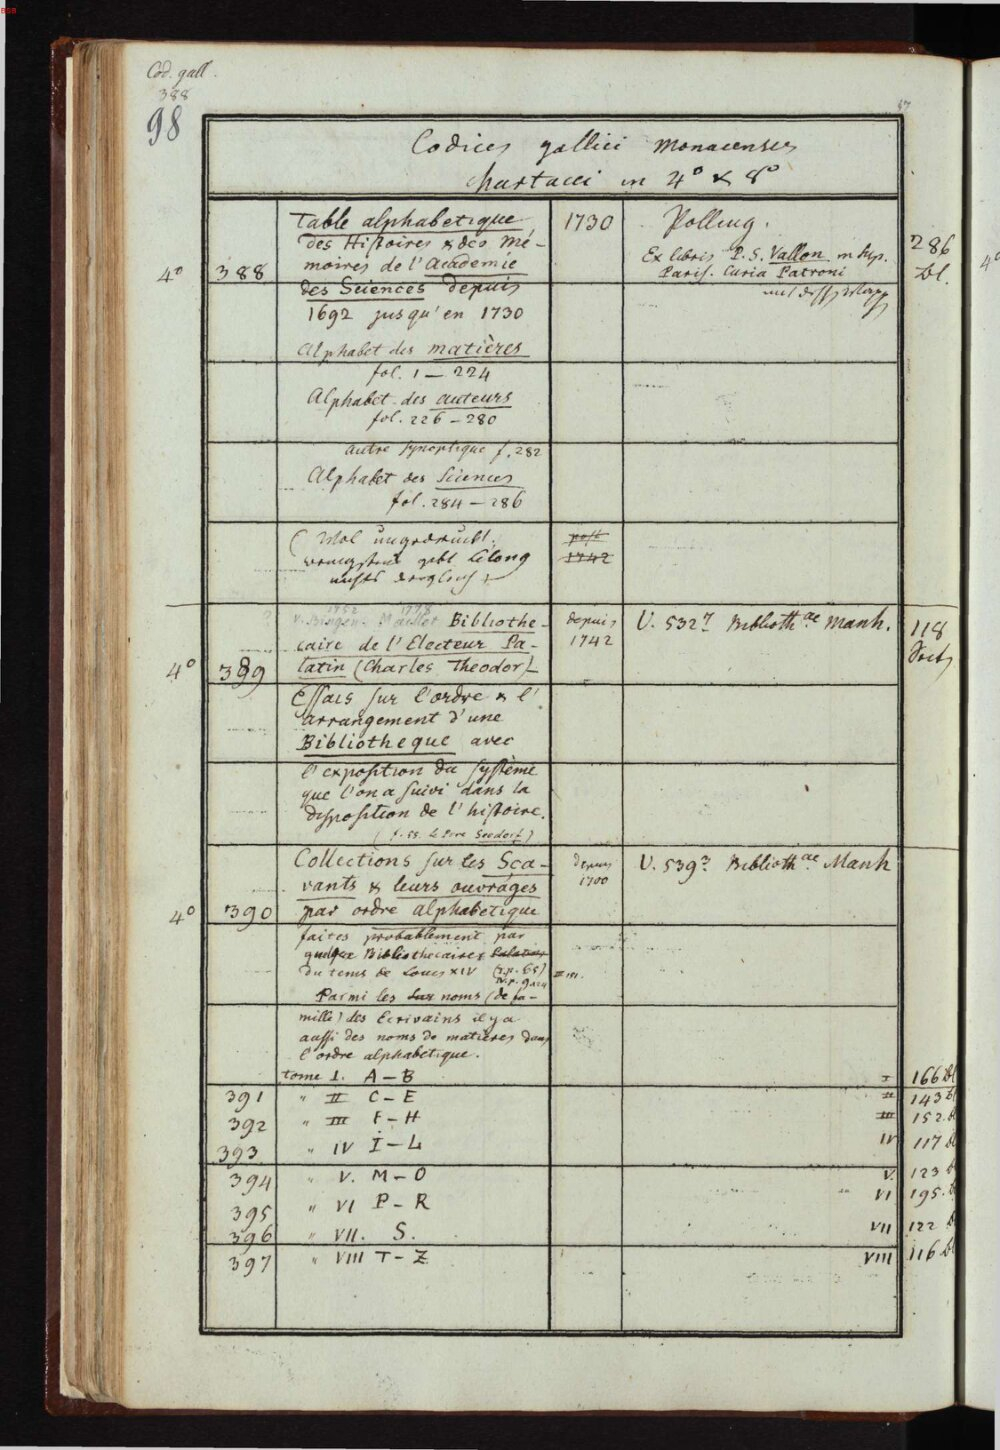 BSB
Cod. gall.
388
98
87
Codices gallici monacenses
chartacei in 4° & 8°
Table alphabetique
des Histoires & des Mé-
moires de l'Academie
des Sciences depuis
1692 jusqu'en 1730
4° 388
1730
Polling.
Ex libris P. S. Vallon in sup.
Paris. Curia Patroni
286
Bl.
Alphabet des matières
fol. 1 — 224
Alphabet des auteurs
fol. 226 — 280
autre synoptique f. 282
Alphabet des Sciences
fol. 284 — 286
(Wol ungedruckt.
wenigstens gibt Lelong
nichts dergleich.)
post
1742
1752 1778
Maillot Bibliothe-
caire de l'Electeur Pa-
latin (Charles Theodor)—
4° 389
depuis
1742
U. 532⁷ Biblioth.ae Manh.
118
Essais sur l'ordre & l'
arrangement d'une
Bibliotheque avec
l'exposition du système
que l'on a suivi dans la
disposition de l'histoire.
(f. 55. le Pere Seedorf)
Collections sur les Sca-
vants & leurs ouvrages
par ordre alphabetique
4° 390
depuis
1700
U. 539³ Biblioth.ae Manh
faites probablement par
quelque Bibliothecaires Palatins
du tems de Louis XIV
Parmi les noms (de fa-
mille) des Ecrivains il y a
aussi des noms de matieres dans
l'ordre alphabetique.
tome I. A — B I 166 Bl
391 " II C — E II 143 Bl
392 " III F — H III 152 Bl
393 " IV I — L IV 117 Bl
394 " V. M — O V. 123 Bl
395 " VI P — R VI 195. Bl
396 " VII. S. VII 122 Bl
397 " VIII T — Z VIII 116 Bl
4°